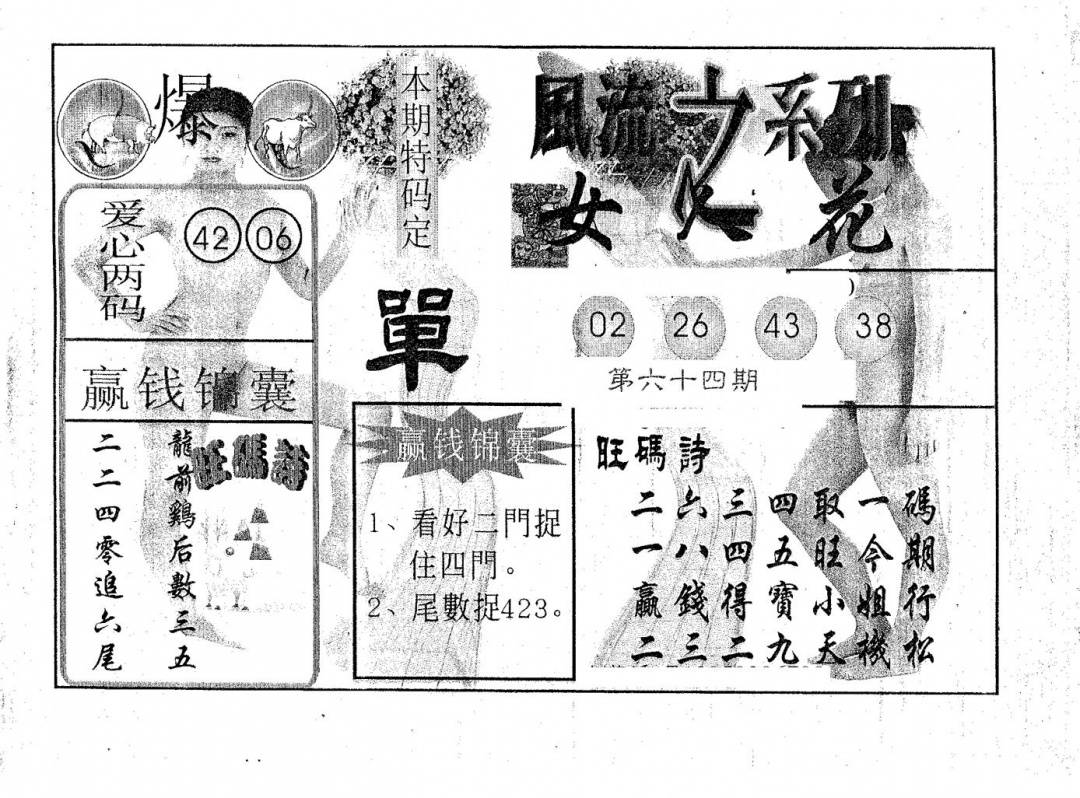 爆
爱心两码
42 06
赢钱锦囊
旺碼詩
龍前鷄后數三五
二二四零追六尾
本期特码定
單
赢钱锦囊
1、看好二門捉
住四門。
2、尾數捉423。
風流之系列
女人花
02 26 43 38
第六十四期
旺碼詩
二六三四取一碼
一八四五旺今期
贏錢得寶小姐行
二三二九天機松